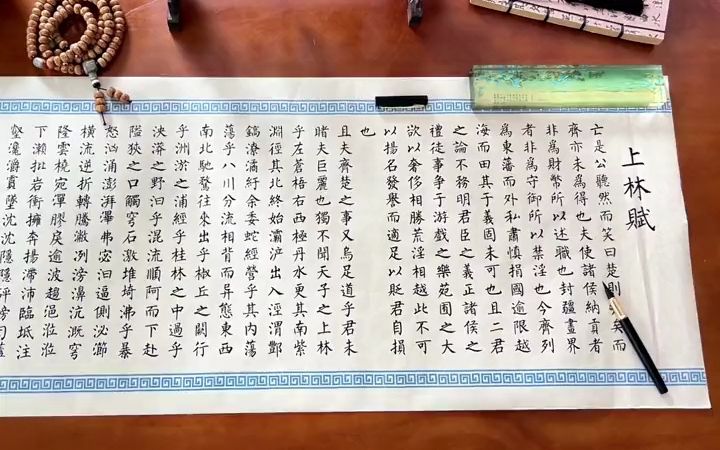 上林賦
亡是公聽然而笑曰楚則矣而
齊亦未為得也夫使諸侯納貢者
非為財幣所以述職也封疆畫界
者非為守御所以禁淫也今齊列
為東藩而外私肅慎捐國逾限越
海而田其于義固未可也且二君
之論不務明君臣之義正諸侯之
禮徒事爭于游戲之樂苑囿之大
欲以奢侈相勝荒淫相越此不可
以揚名發譽而適足以貶君自損
也
且夫齊楚之事又烏足道乎君未
睹夫巨麗也獨不聞天子之上林
乎左蒼梧右西極丹水更其南紫
淵徑其北終始灞滻出入涇渭酆
鎬潦潏紆余委蛇經營乎其內蕩
蕩乎八川分流相背而異態東西
南北馳騖往來出乎椒丘之闕行
乎洲淤之浦經乎桂林之中過乎
泱漭之野汩乎混流順阿而下赴
隘狹之口觸穹石激堆埼沸乎暴
怒洶涌澎湃滭弗宓汩逼側泌瀄
橫流逆折轉騰潎洌滂濞沆溉穹
隆雲橈宛潬膠戾逾波趨浥涖涖
下瀨批岩衝擁奔揚滯沛臨坻注
壑瀺灂霣墜沈沈隱隱砰磅訇